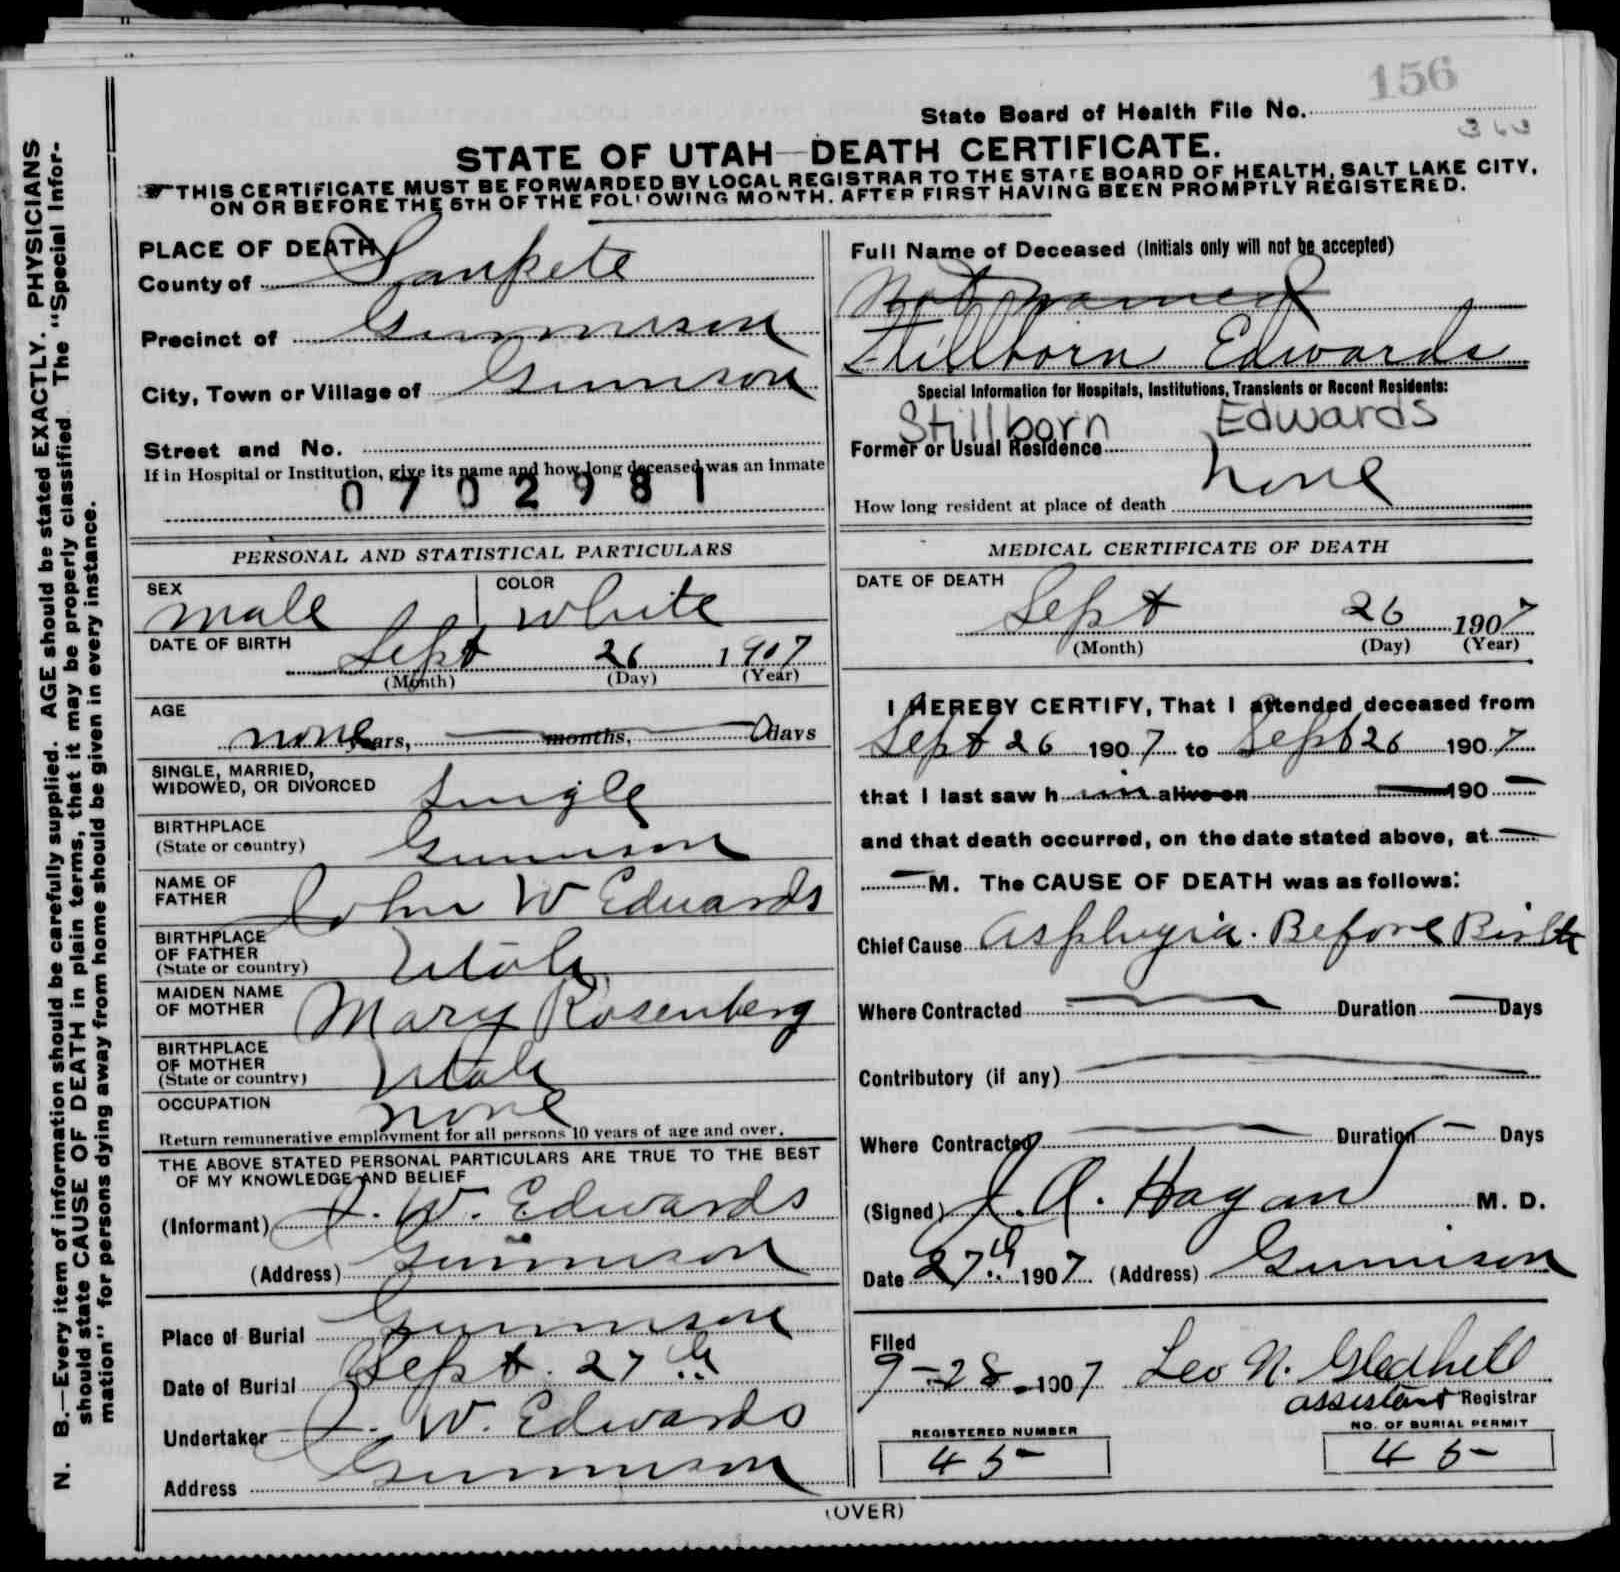 156
State Board of Health File No.
363
STATE OF UTAH—DEATH CERTIFICATE.
THIS CERTIFICATE MUST BE FORWARDED BY LOCAL REGISTRAR TO THE STATE BOARD OF HEALTH, SALT LAKE CITY,
ON OR BEFORE THE 5TH OF THE FOLLOWING MONTH. AFTER FIRST HAVING BEEN PROMPTLY REGISTERED.
N. B.—Every item of information should be carefully supplied. AGE should be stated EXACTLY. PHYSICIANS
should state CAUSE OF DEATH in plain terms, that it may be properly classified The "Special Infor-
mation" for persons dying away from home should be given in every instance.
PLACE OF DEATH
County of Sanpete
Precinct of Gunnison
City, Town or Village of Gunnison
Street and No.
If in Hospital or Institution, give its name and how long deceased was an inmate
0702981
PERSONAL AND STATISTICAL PARTICULARS
SEX male COLOR white
DATE OF BIRTH
Sept 26 1907
(Month) (Day) (Year)
AGE
none years, months, 0 days
SINGLE, MARRIED,
WIDOWED, OR DIVORCED Single
BIRTHPLACE
(State or country) Gunnison
NAME OF
FATHER John W Edwards
BIRTHPLACE
OF FATHER
(State or country) Utah
MAIDEN NAME
OF MOTHER Mary Rosenberg
BIRTHPLACE
OF MOTHER
(State or country) Utah
OCCUPATION none
Return remunerative employment for all persons 10 years of age and over.
THE ABOVE STATED PERSONAL PARTICULARS ARE TRUE TO THE BEST
OF MY KNOWLEDGE AND BELIEF
(Informant) J. W. Edwards
(Address) Gunnison
Place of Burial Gunnison
Date of Burial Sept. 27th
Undertaker J. W. Edwards
Address Gunnison
Full Name of Deceased (Initials only will not be accepted)
Not Named
Stillborn Edwards
Special Information for Hospitals, Institutions, Transients or Recent Residents:
Stillborn Edwards
Former or Usual Residence
none
How long resident at place of death
MEDICAL CERTIFICATE OF DEATH
DATE OF DEATH
Sept 26 1907
(Month) (Day) (Year)
I HEREBY CERTIFY, That I attended deceased from
Sept 26 1907 to Sept 26 1907
that I last saw him alive on 190
and that death occurred, on the date stated above, at
M. The CAUSE OF DEATH was as follows:
Chief Cause Asphyxia. Before Birth
Where Contracted Duration Days
Contributory (if any)
Where Contracted Duration Days
(Signed) J. A. Hagan M. D.
Date 27th 1907 (Address) Gunnison
Filed
9-28-1907 Leo N. Gledhill
assistant Registrar
REGISTERED NUMBER
45
NO. OF BURIAL PERMIT
45
(OVER)